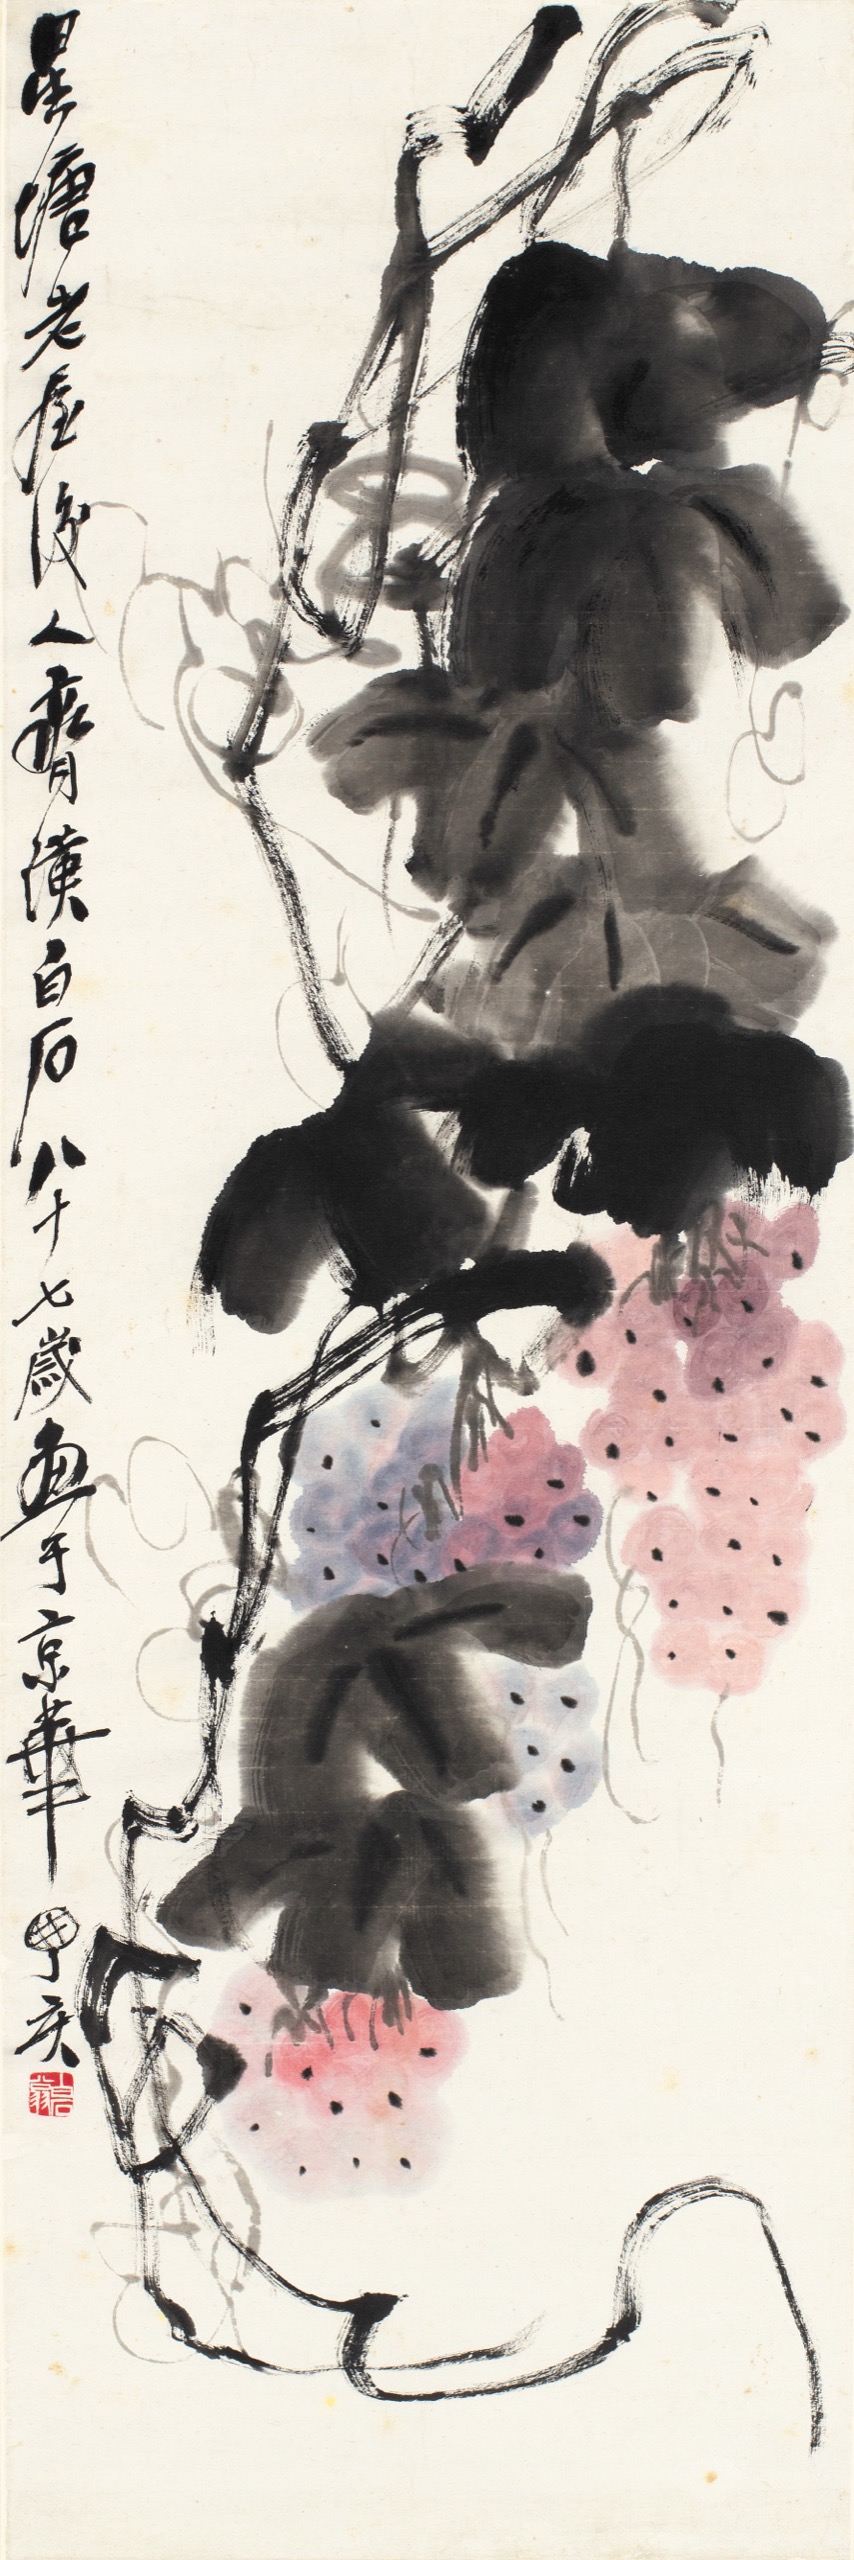 星塘老屋後人齊璜白石八十七歲畫于京華丁亥
白石翁